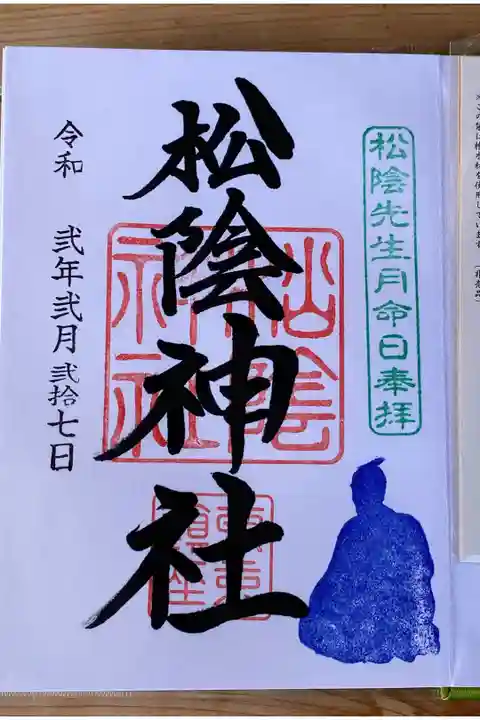 松陰先生月命日奉拝
松陰神社
松陰
神社
令和 弐年弐月弐拾七日